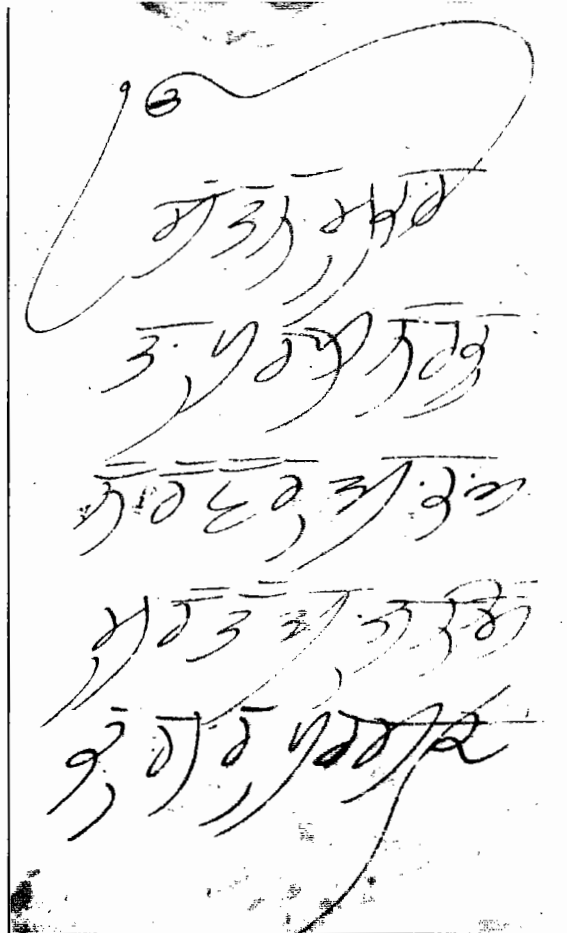 ੴ
ਸਤਿਨਾਮੁ ਕਰ
ਤਾ ਪੁਰਖੁ ਨਿਰਭਉ
ਨਿਰਵੈਰੁ ਅਕਾਲ
ਮੂਰਤਿ ਅਜੂਨੀ ਸੈ
ਭੰ ਗੁਰ ਪਰਸਾਦਿ